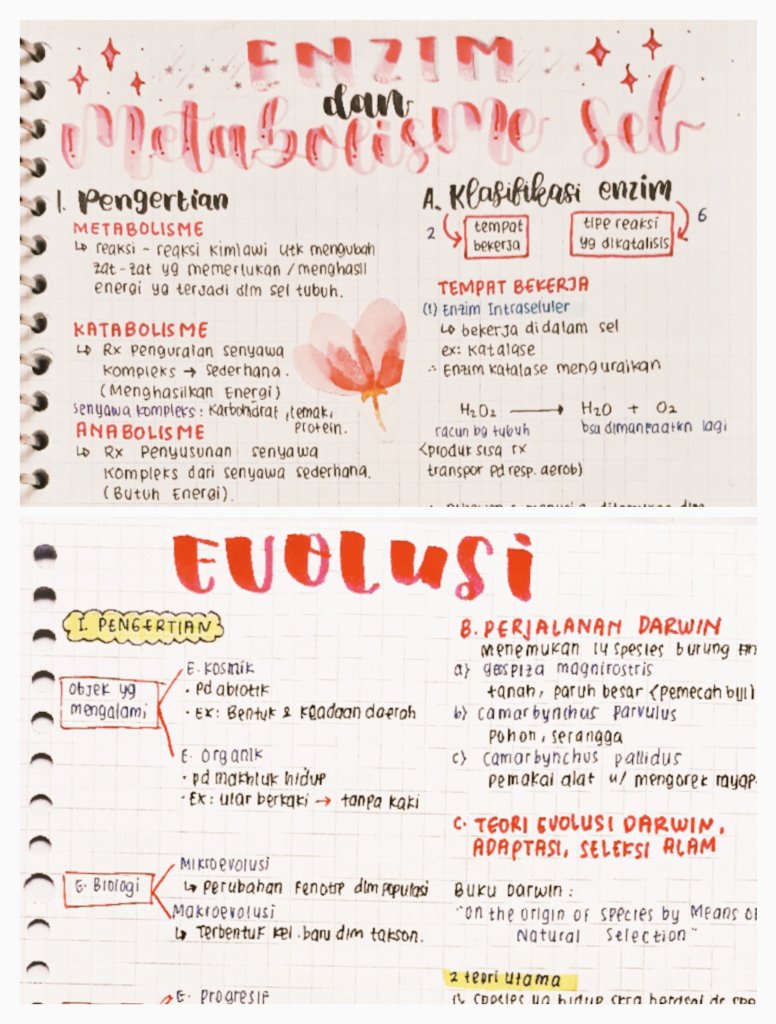 ENZIM
dan
Metabolisme sel
1. Pengertian
METABOLISME
↳ reaksi - reaksi kimiawi utk mengubah
zat - zat yg memerlukan / menghasil
energi yg terjadi dlm sel tubuh.
KATABOLISME
↳ Rx Penguraian senyawa
kompleks → sederhana.
(Menghasilkan Energi)
senyawa kompleks : karbohidrat, lemak,
protein.
ANABOLISME
↳ Rx Penyusunan senyawa
kompleks dari senyawa sederhana.
(Butuh Energi).
A. Klasifikasi enzim
2
tempat
bekerja
tipe reaksi
yg dikatalisis
6
TEMPAT BEKERJA
(1) Enzim Intraseluler
↳ bekerja didalam sel
ex: katalase
∴ Enzim katalase menguraikan
H2O2 → H2O + O2
racun bg tubuh
bsa dimanfaatkn lagi
<produk sisa rx
transpor pd resp. aerob)
EVOLUSI
I. PENGERTIAN
objek yg
mengalami
E. kosmik
• pd abiotik
• Ex: Bentuk & keadaan daerah
E. organik
• pd makhluk hidup
• Ex: ular berkaki → tanpa kaki
E. Biologi
Mikroevolusi
↳ perubahan fenotip dlm populasi
Makroevolusi
↳ Terbentuk kel. baru dlm takson.
E. Progresif
B. PERJALANAN DARWIN
menemukan 14 spesies burung
a) geospiza magnirostris
tanah, paruh besar (pemecah biji)
b) camarbynchus parvulus
pohon, serangga
c) camarbynchus pallidus
pemakai alat u/ mengorek rayap
C. TEORI EVOLUSI DARWIN,
ADAPTASI, SELEKSI ALAM
Buku Darwin :
"on the origin of species by Means of
Natural Selection"
2 teori utama